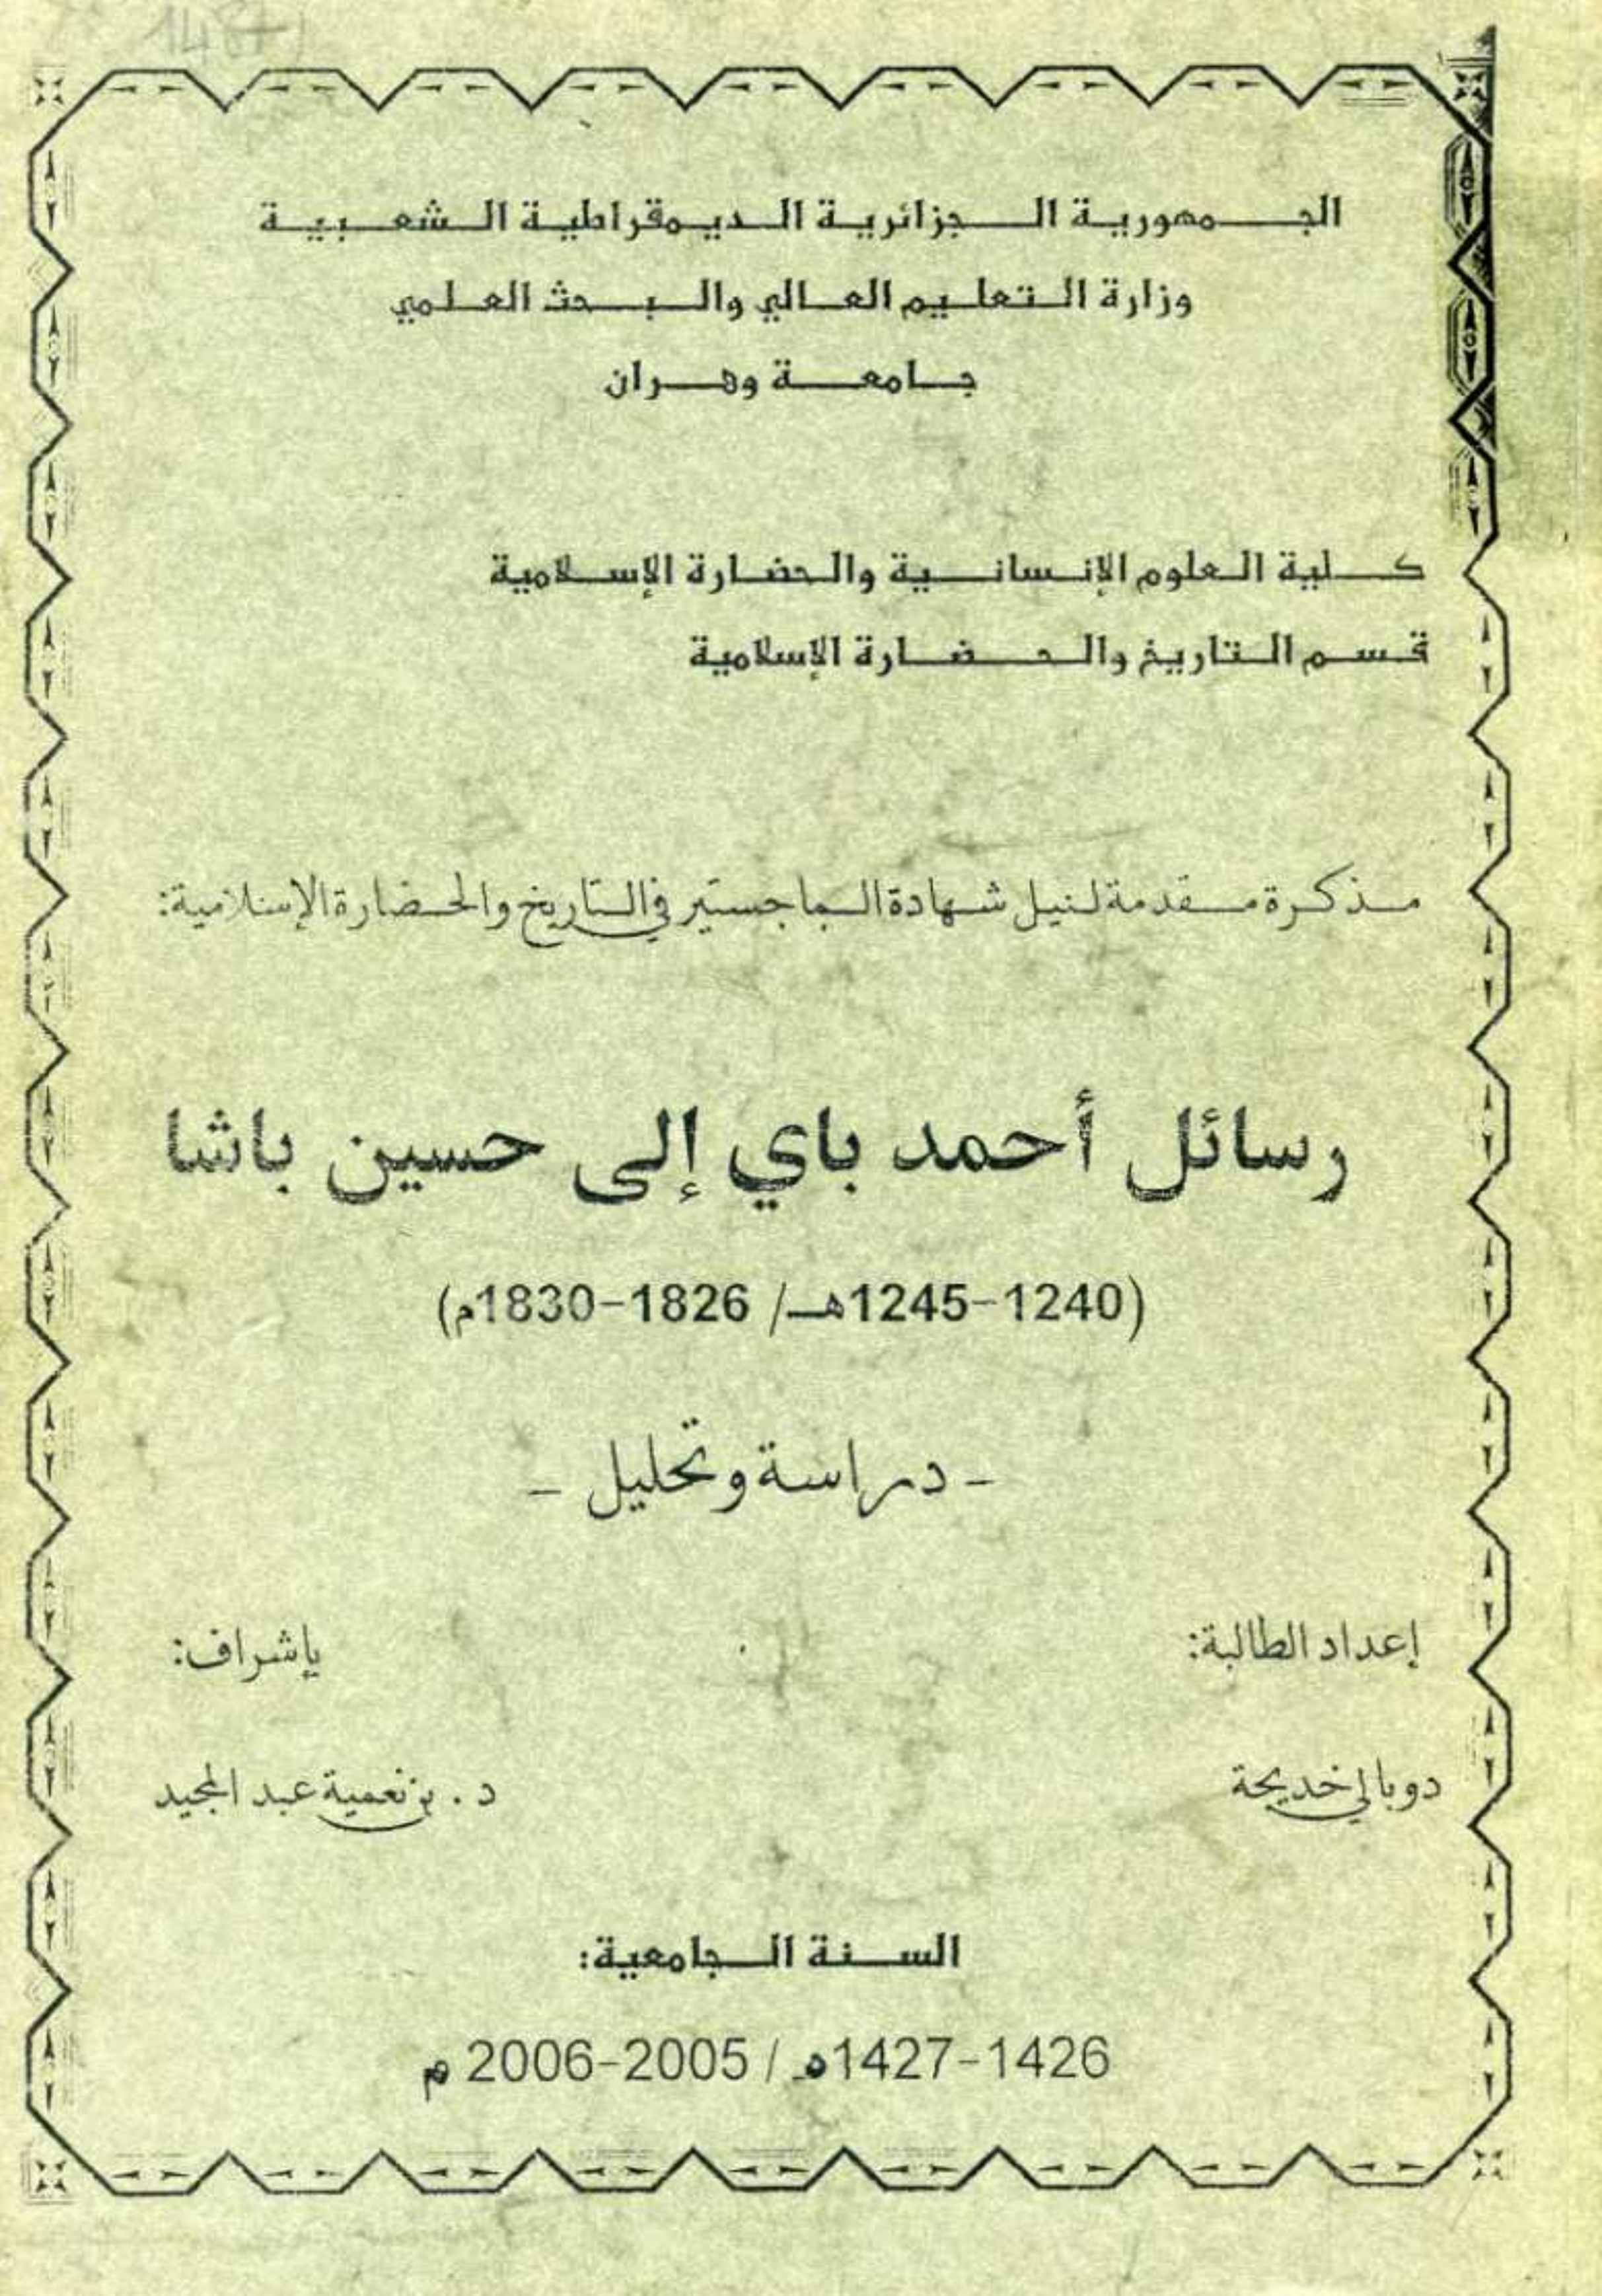 الجمهورية الجزائرية الديموقراطية الشعبية
وزارة التعليم العالي والبحث العلمي
جامعة وهران
كلية العلوم الإنسانية والحضارة الإسلامية
قسم التاريخ والحضارة الإسلامية
مذكرة مقدمة لنيل شهادة الماجستير في التاريخ والحضارة الإسلامية:
رسائل أحمد باي إلى حسين باشا
(1240-1245هـ/ 1826-1830م)
- دراسة وتحليل -
إعداد الطالبة: بإشراف:
دوبالي خديجة د. بن نعمية عبد المجيد
السنة الجامعية:
1426-1427هـ / 2005-2006 م